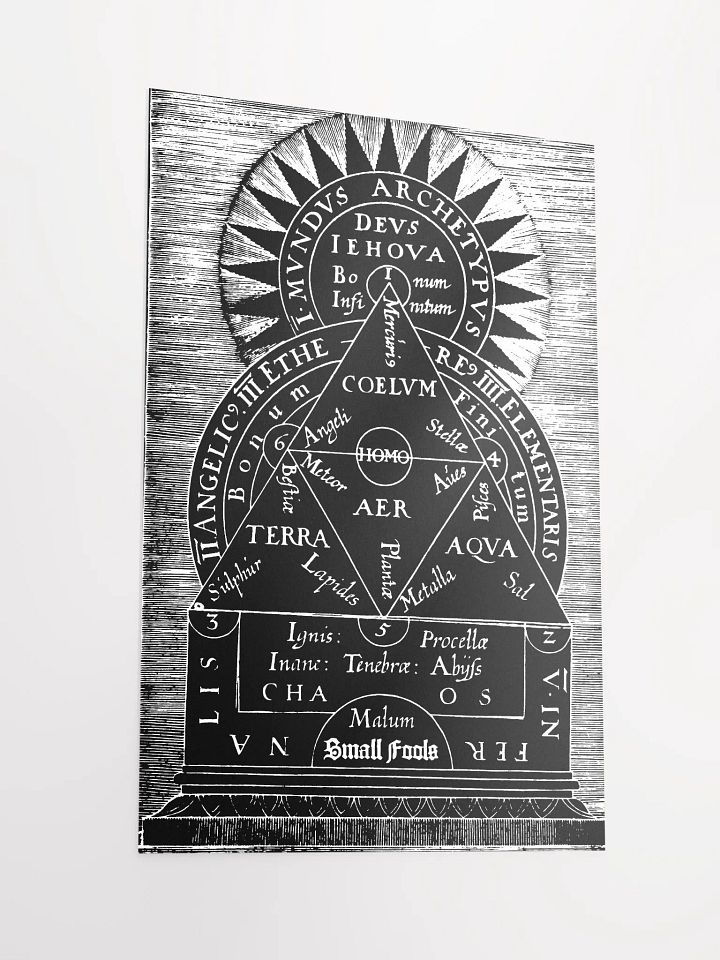 I. MVNDVS ARCHETYPVS
DEVS
IEHOVA
Bo 1 num
Infi nitum
Mercuri9
II ANGELIC9. III ETHE RE9 IIII ELEMENTARIS
Bonum Finitum
COELVM
6 Angeli Stellæ 4
HOMO
Meteor Aues
Bestiæ Pisces
AER
TERRA AQVA
Sulphur Lapides Plantæ Metalla Sal
3 5 2
Ignis: Procellæ
Inane: Tenebræ: Abyss
CHA OS
Malum
Small Fools
V. IN FER NA LIS